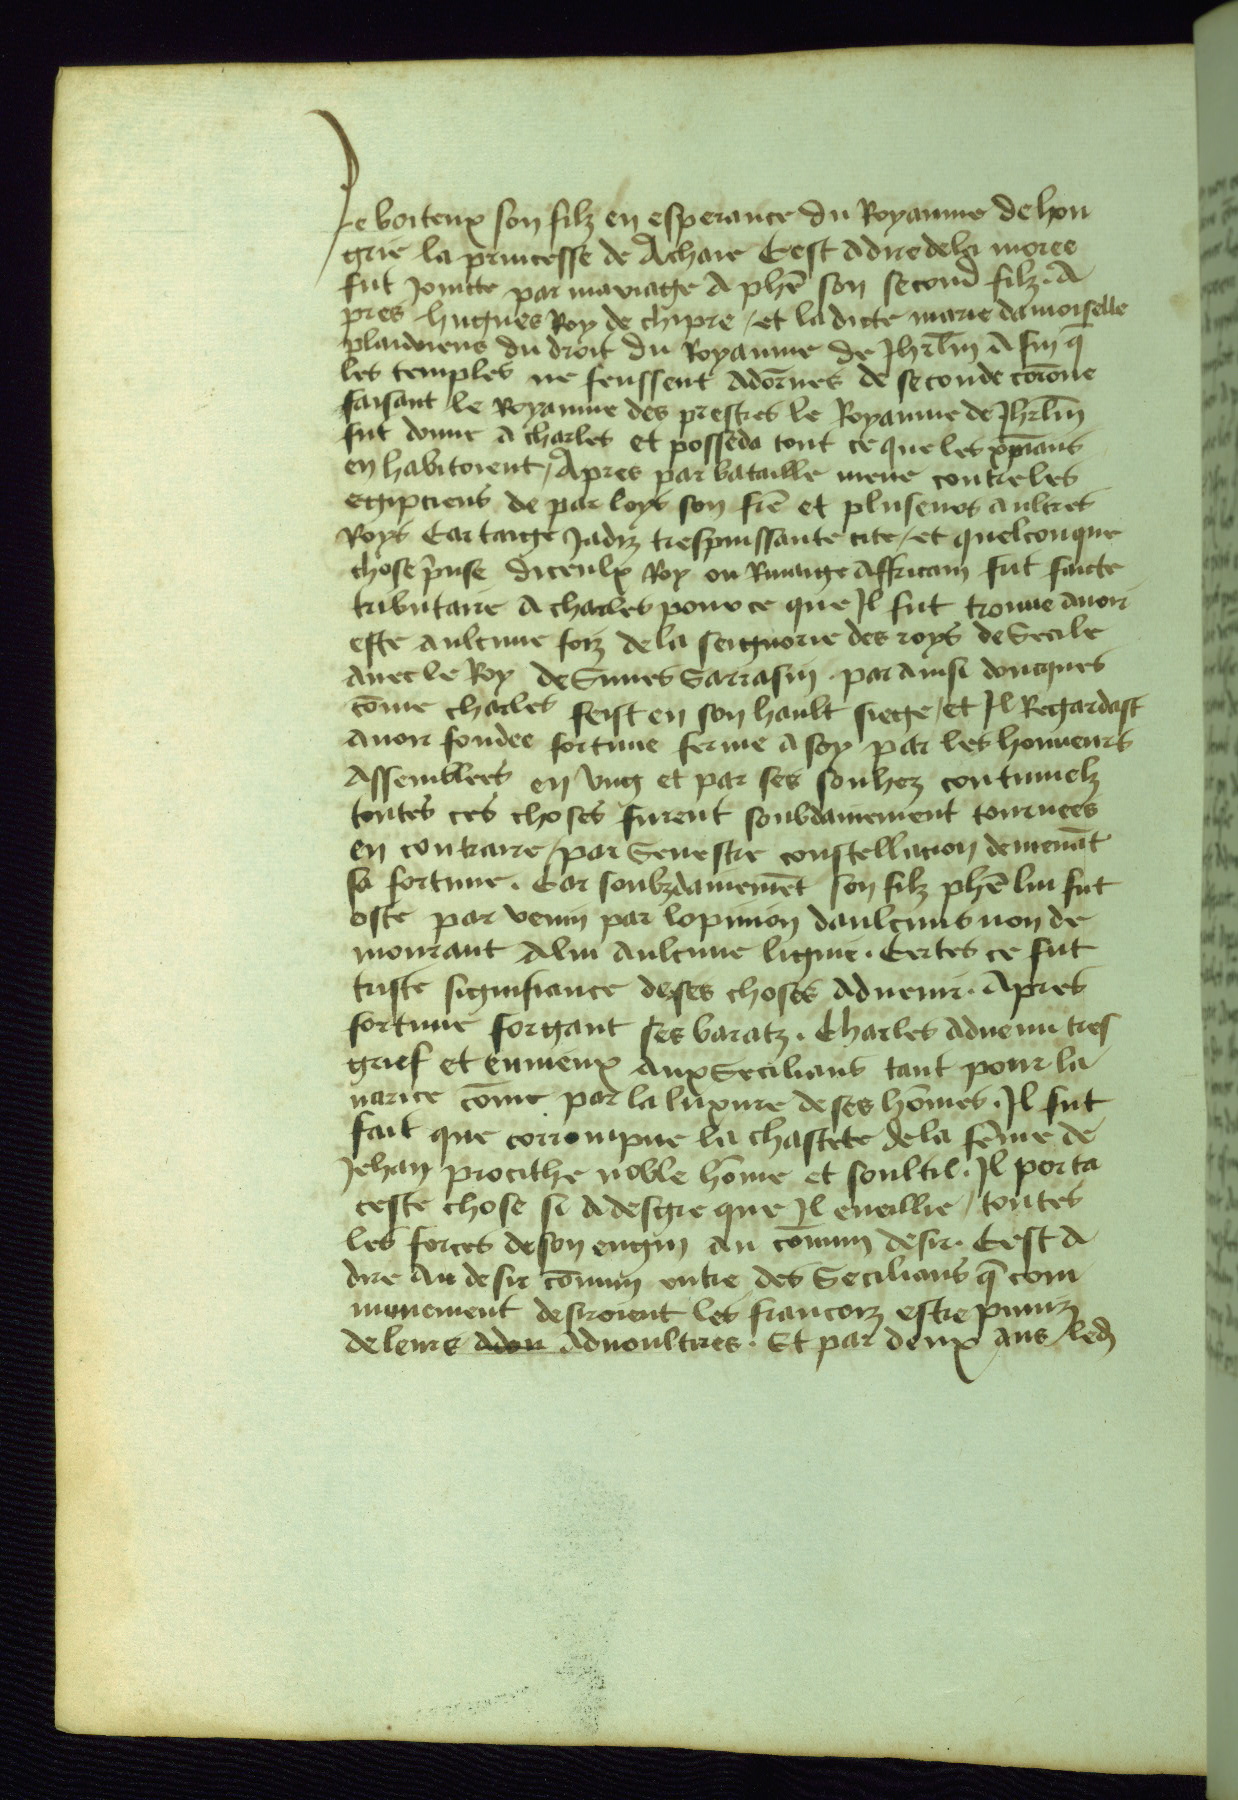 Le boiteux son filz en esperance du Royaume de hon
grie la princesse de Achaie Cest adire dela moree
fut joincte par mariage a phē son second filz. A
pres hugues Roy de chipre / et ladicte marie damoiselle
plaidoiens du droit du Royaume de Jhrlm̄ Afin q̄
les temples ne feussent adornes de seconde corōne
faisant le Royaume des prestres le Royaume de Jhrlm̄
fut donne a charles et posseda tout ce que les xp̄ians
en habitoient / Apres par bataille mene contre les
egipciens de par loys son frē et plusieurs aultres
Roys Cartaige Jadiz trespuissante cite / et quelconque
chose prinse diceulx Roy ou Rivaige Affricain fut faicte
tributaire a charles pource que Jl fut trouve avoir
este aulcune foiz dela seignorie des roys de Secile
avec le Roy de Sunes Sarrasin . par ainsi doncques
cōme charles feist en son hault siege / et Jl Regardast
avoir fondee fortune ferme a soy par les honneurs
Assemblees en vng et par ses souhez continuelz
toutes ces choses furent soubdainement tournees
en contraire / par Senestre constellacion demenāt
sa fortune . Car soubzdainemēt son filz phē lui fut
oste par venin par lopinion daulcuns non de
mourant alui aulcune lignie . Certes ce fut
triste signifiance de ses choses advenir . Apres
fortune forgant ses baratz . Charles advenu tres
grief et ennieux aux Secilians tant pour la
varice cōme par la luxure de ses hōmes . Jl fut
fait que corrompue la chastete dela fēme de
Jehan procithe noble hōme et soultil . Jl porta
ceste chose si adesgre que Jl eveillie / toutes
les forces de son engin au cōmun desir . Cest a
dire au desir cōmun entre des Secilians q̄ com
munement desiroient les francoiz estre puniz
de leurs adou advoultires . Et par deux ans led